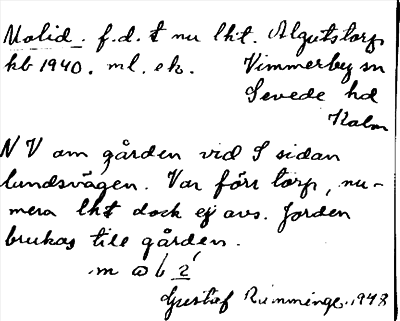 Malid. f.d. t nu lht. Algutstorp
kb 1940. ml. ek. Vimmerby sn
Sevede hd
Kalm
N V om gården vid S sidan
landsvägen. Var förr torp, nu-
mera lht dock ej avs. Jorden
brukas till gården.
m a b 2
Gustaf Rimminge. 1948